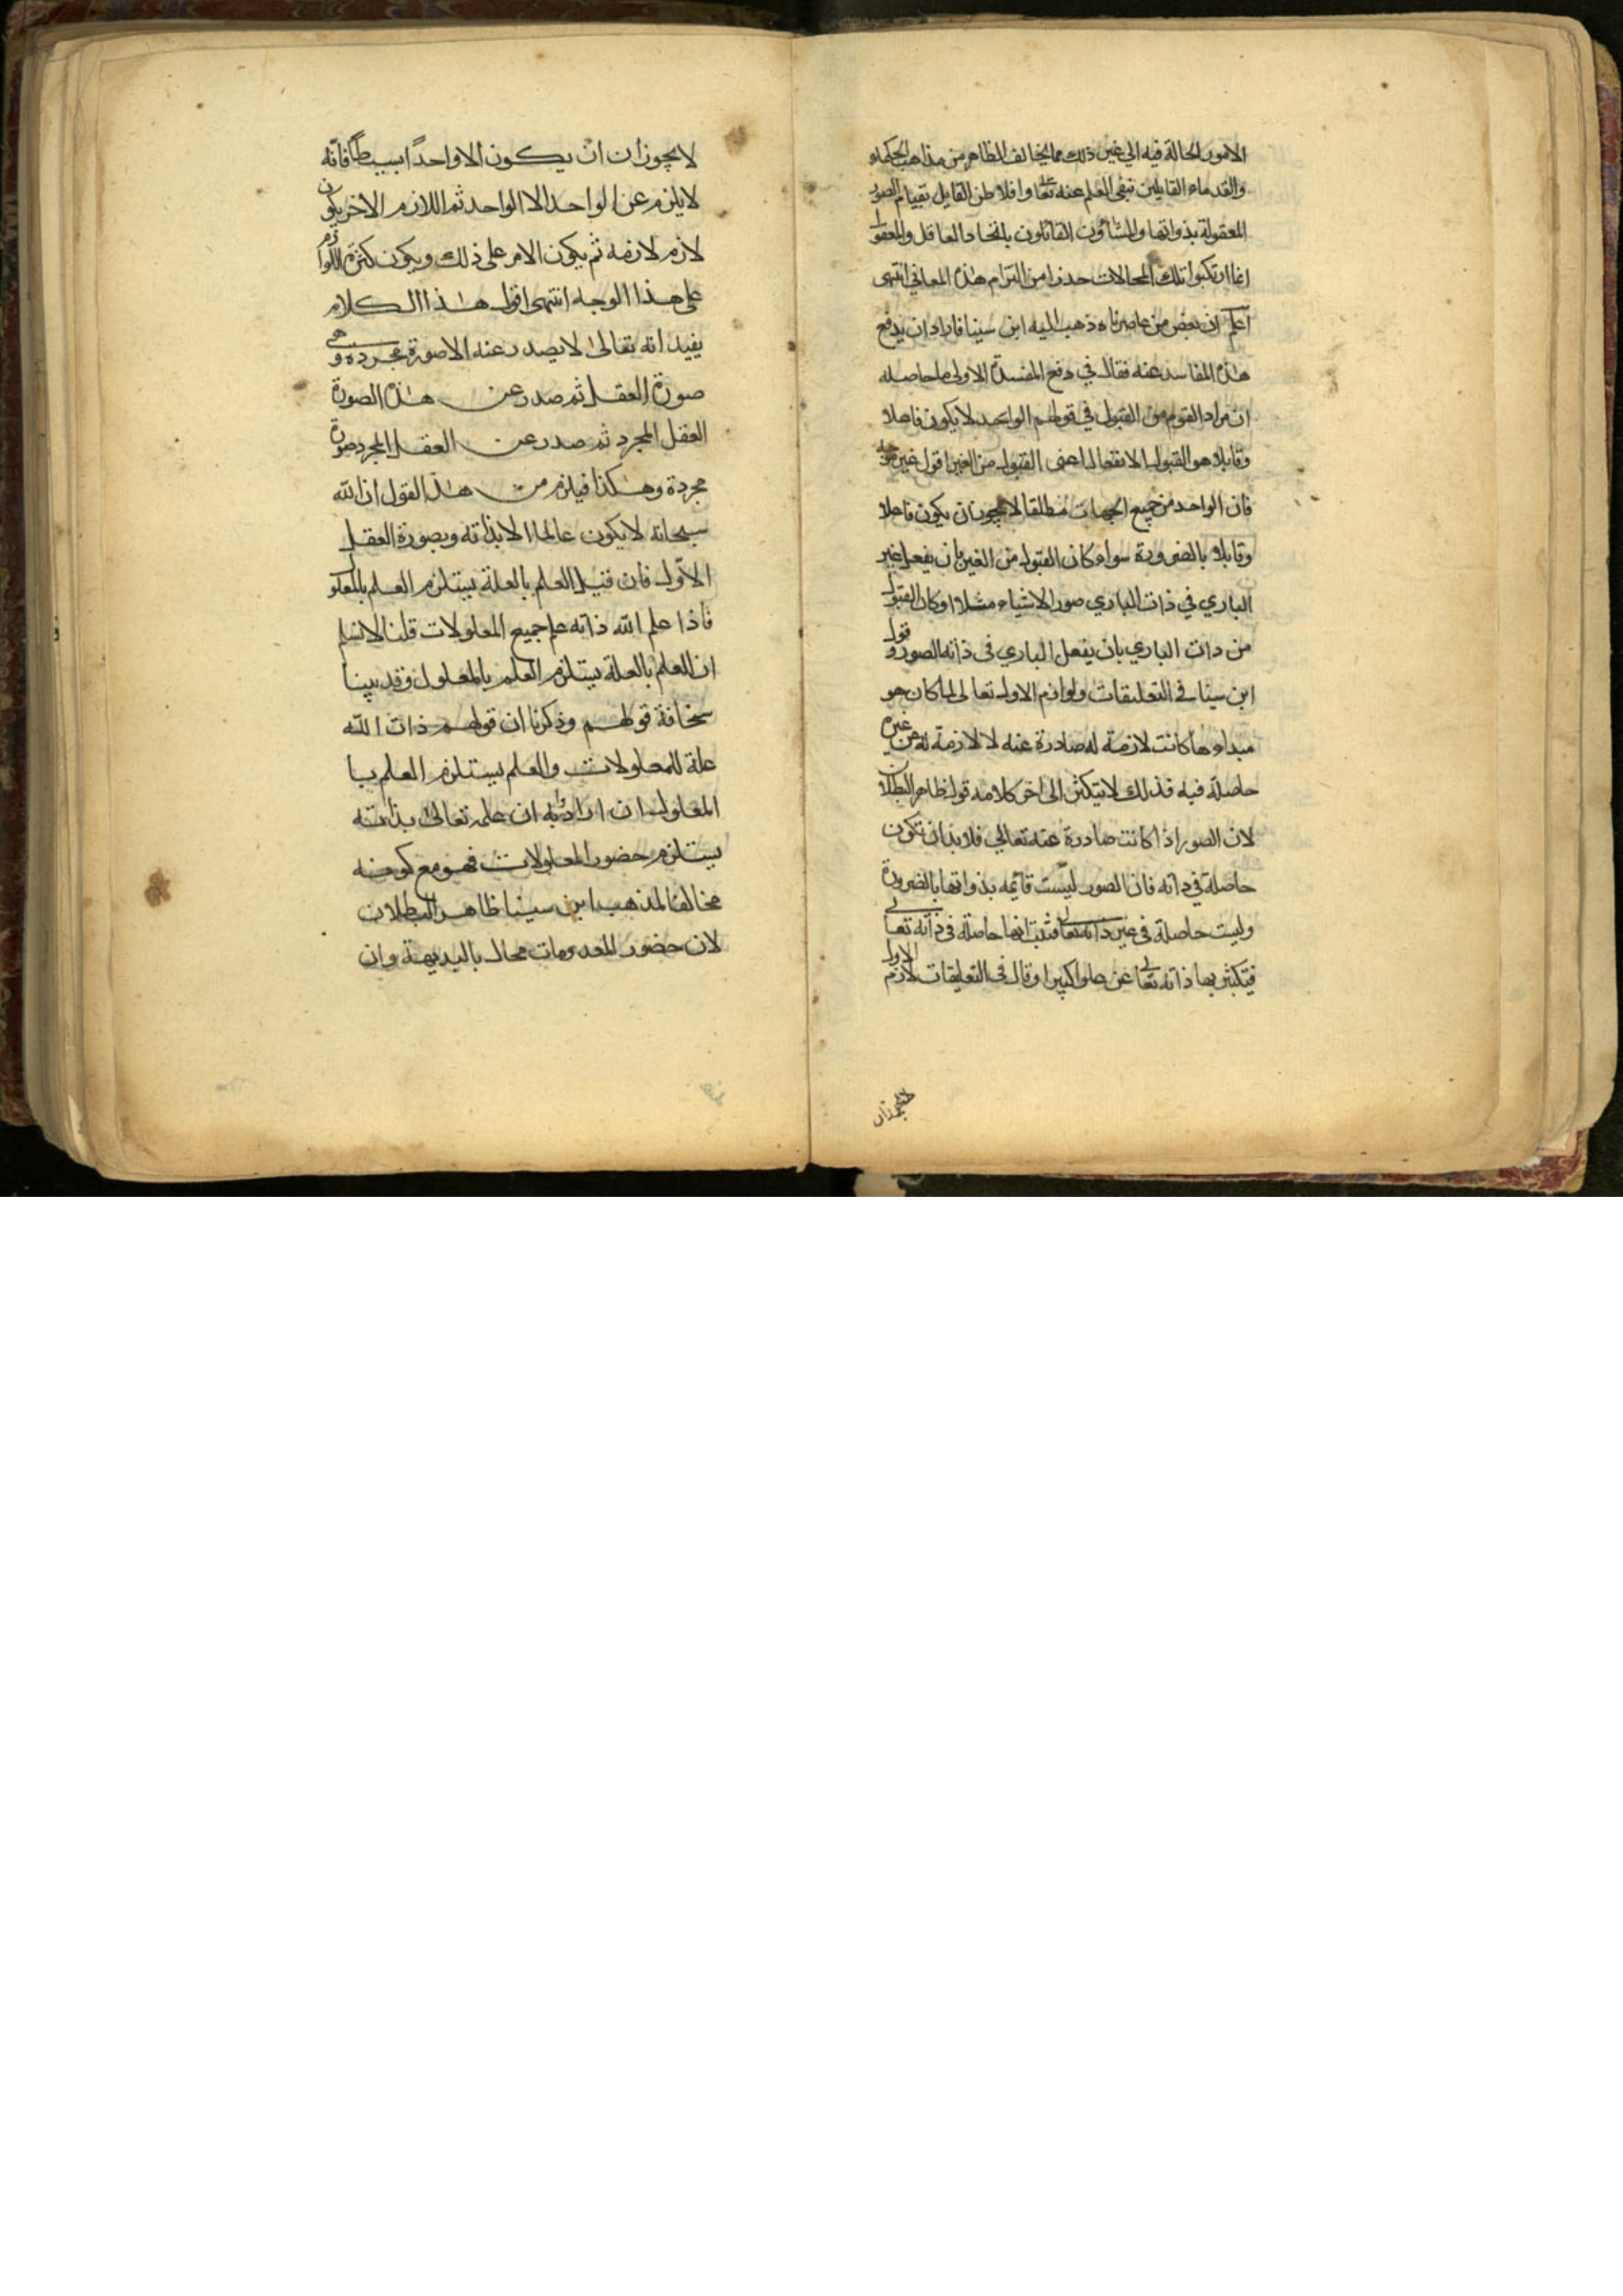 الامور الحالة فيه الي غير ذلك مما يخالف الظاهر من مذاهب الحكماء
والقدماء القايلين بنفي العلم عنه تعا وافلاطن القايل بقيام الصور
المعقولة بذواتها والمشاؤون القائلون باتحاد العاقل والمعقول
انما ارتكبوا تلك المحالات حذرا من التزام هذه المعاني انتهى
اعلم ان بعض من عاصرناه ذهب اليه ابن سينا فاراد ان يدفع
هذه المفاسد عنه فقال في دفع المفسدة الاولى ما حاصله
ان مراد القوم من القبول في قولهم الواحد لا يكون فاعلا
وقابلا هو القبول الانفعالى اعنى القبول من الغير اقول غير
فان الواحد من جميع الجهات مطلقا لا يجوز ان يكون فاعلا
وقابلا بالضرورة سواء كان القبول من الغير بان يفعل غير
الباري في ذات الباري صور الاشياء مثلا او كان القبول
من ذات الباري بان يفعل الباري فى ذاته الصور وقول
ابن سينا في التعليقات ولوازم الاول تعالى لما كان هو
مبداءها كانت لازمة له صادرة عنه لا لازمة له من غيره
حاصلة فيه فذلك لا يتكثر الى اخر كلامه قول ظاهر البطلان
لان الصور اذا كانت صادرة عنه تعالي فلا بد ان تكون
حاصلة في ذاته فان الصور ليست قايمه بذواتها بالضرورة
وليست حاصلة فى غير ذاته تعالى فثبت انها حاصلة فى ذاته تعالى
فيتكثر بها ذاته تعالى عن علوا كبيرا وقال فى التعليقات لازم الاول
لا يجوز ان
لا يجوز ان ان يكون الا واحدًا بسيطًا فانّه
لا يلزم عن الواحد الا الواحد ثم اللازم الاخر يكون
لازم لازمه ثم يكون الامر على ذلك ويكون كثرة اللوازم
على هذا الوجه انتهى اقول هذا الكلام
يفيد انه تعالى لا يصدر عنه الا صورة مجرده وهي
صورة العقل ثم صدر عن هذه الصورة
العقل المجرد ثم صدر عن العقل المجرد صورة
مجردة وهكذا فيلزم من هذا القول ان الله
سبحانه لا يكون عالما الا بذاته وبصورة العقل
الاوّل فان قيل العلم بالعلة يستلزم العلم بالمعلول
فاذا علم الله ذاته علم جميع المعلولات قلنا لا نسلم
ان العلم بالعلة يستلزم العلم بالمعلول وقد بينا
سخافة قولهم وذكرنا ان قولهم ذات الله
علة للمعلولات والعلم يستلزم العلم با
المعلول ان ارادوا به ان علمه تعالى بذاته
يستلزم حضور المعلولات فهو مع كونه
مخالفا لمذهب ابن سينا ظاهر البطلان
لان حضور المعدومات محال بالبديهة وان